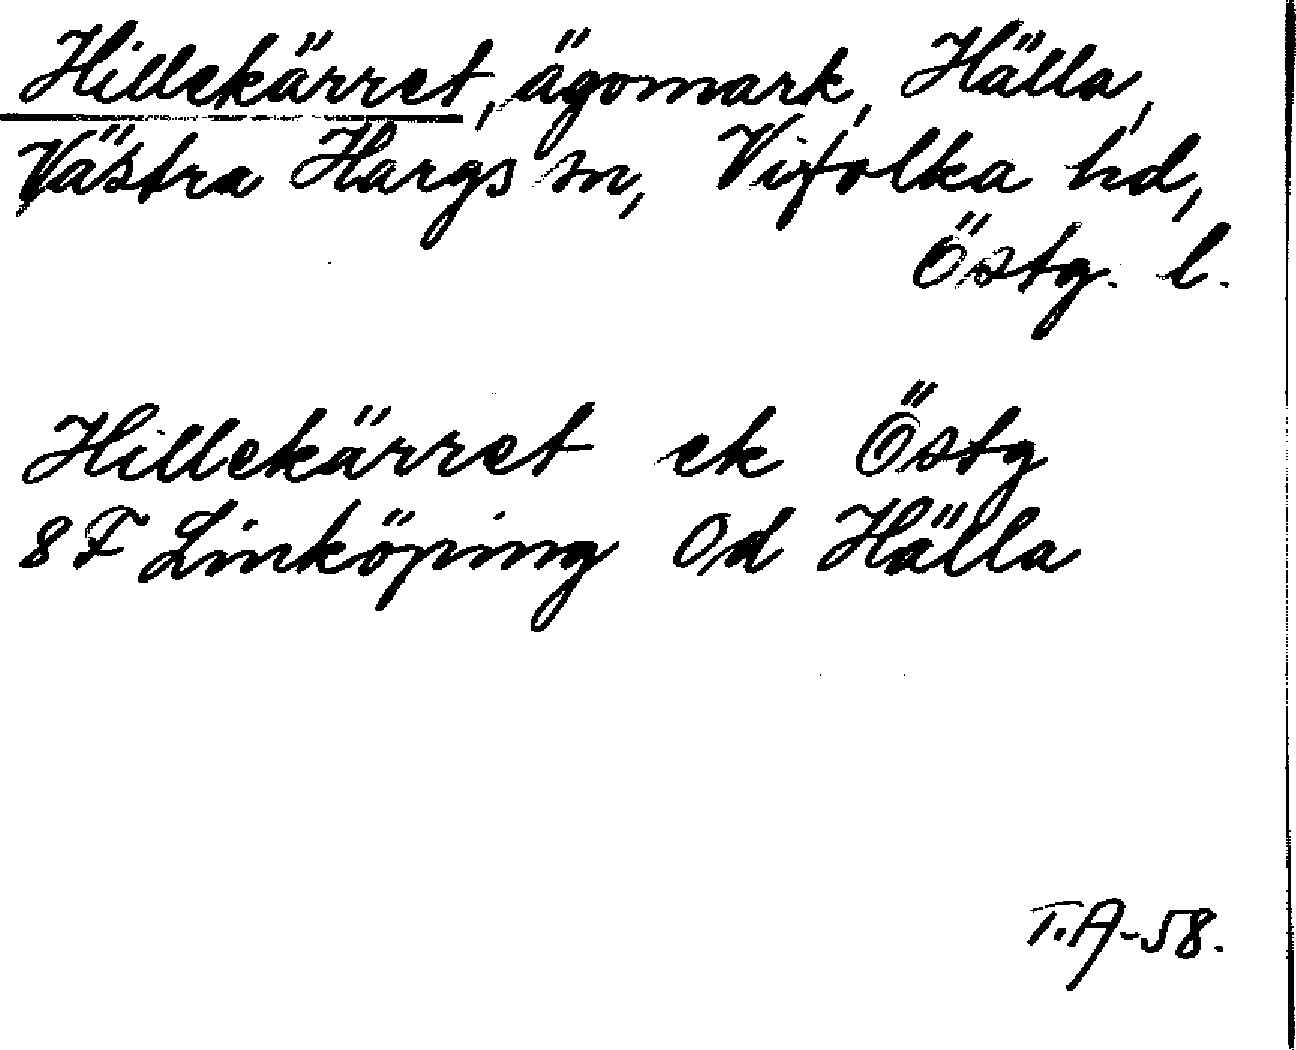 Hillekärret, ägomark, Hälla,
Västra Hargs sn, Vifolka hd,
Östg. l.
Hillekärret ek Östg
8 F Linköping Od Hälla
T.A-58.